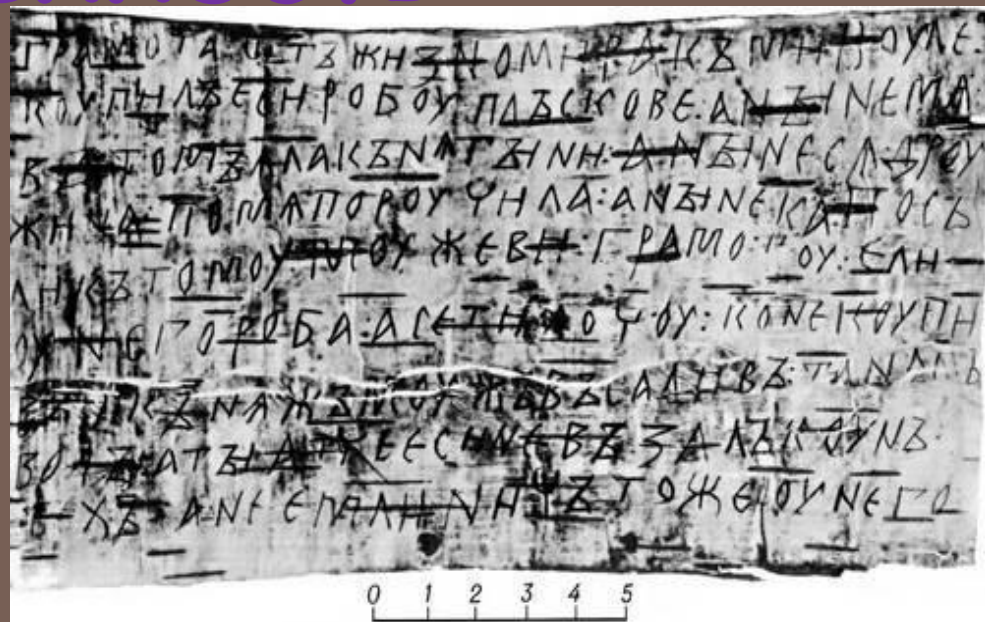 ГРАМОТА ѠТЪ ЖИЗНОМИРА КЪ МИКОУЛЕ:
КОУПИЛЪ ЕСИ РОБОУ ПЛЪСКОВЕ: А НЪІНЕ МѦ:
ВЪ ТОМЪ ѦЛА КЪНѦГЪІНИ: А НЪІНЕ СѦ ДРОУ
ЖИНА ПО МѦ ПОРОУЧИЛА: А НЪІНЕ КА ПОСЪ
ЛИ КЪ ТОМОУ МОУЖЕВИ: ГРАМОТОУ: ЕЛИ
ОУ НЕГО РОБА: А СЕ ТИ ХОЧОУ: КОНЕ КОУПИ
ВЪ И КЪНѦЖЪ МОУЖЪ ВЪСАДИВЪ: ТА НА СЪ
ВОДЪІ: А ТЪІ АТЧЕ ЕСИ НЕ ВЪЗАЛЪ КОУНЪ:
ТЕХЪ: А НЕ ЕМЛИ НИЧЪТО ЖЕ ОУ НЕГО
0 1 2 3 4 5